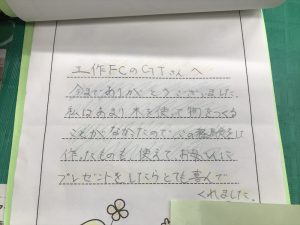 工作FCのGTさんへ
今まで、ありがとうございました。
私はあまり木を使って物をつくる
ことがなかったので、心の
作ったものも使えてお兄ちゃんに
プレゼントをしたらとても喜んで
くれました。